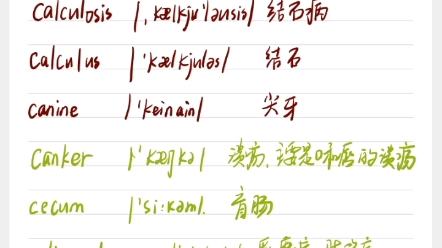 calculosis |ˌkælkju'ləusis| 结石病
calculus |'kælkjuləs| 结石
canine |'keinain| 尖牙
canker |'kæŋkə| 溃疡，主要是口和唇的溃疡
cecum |'si:kəm|. 盲肠